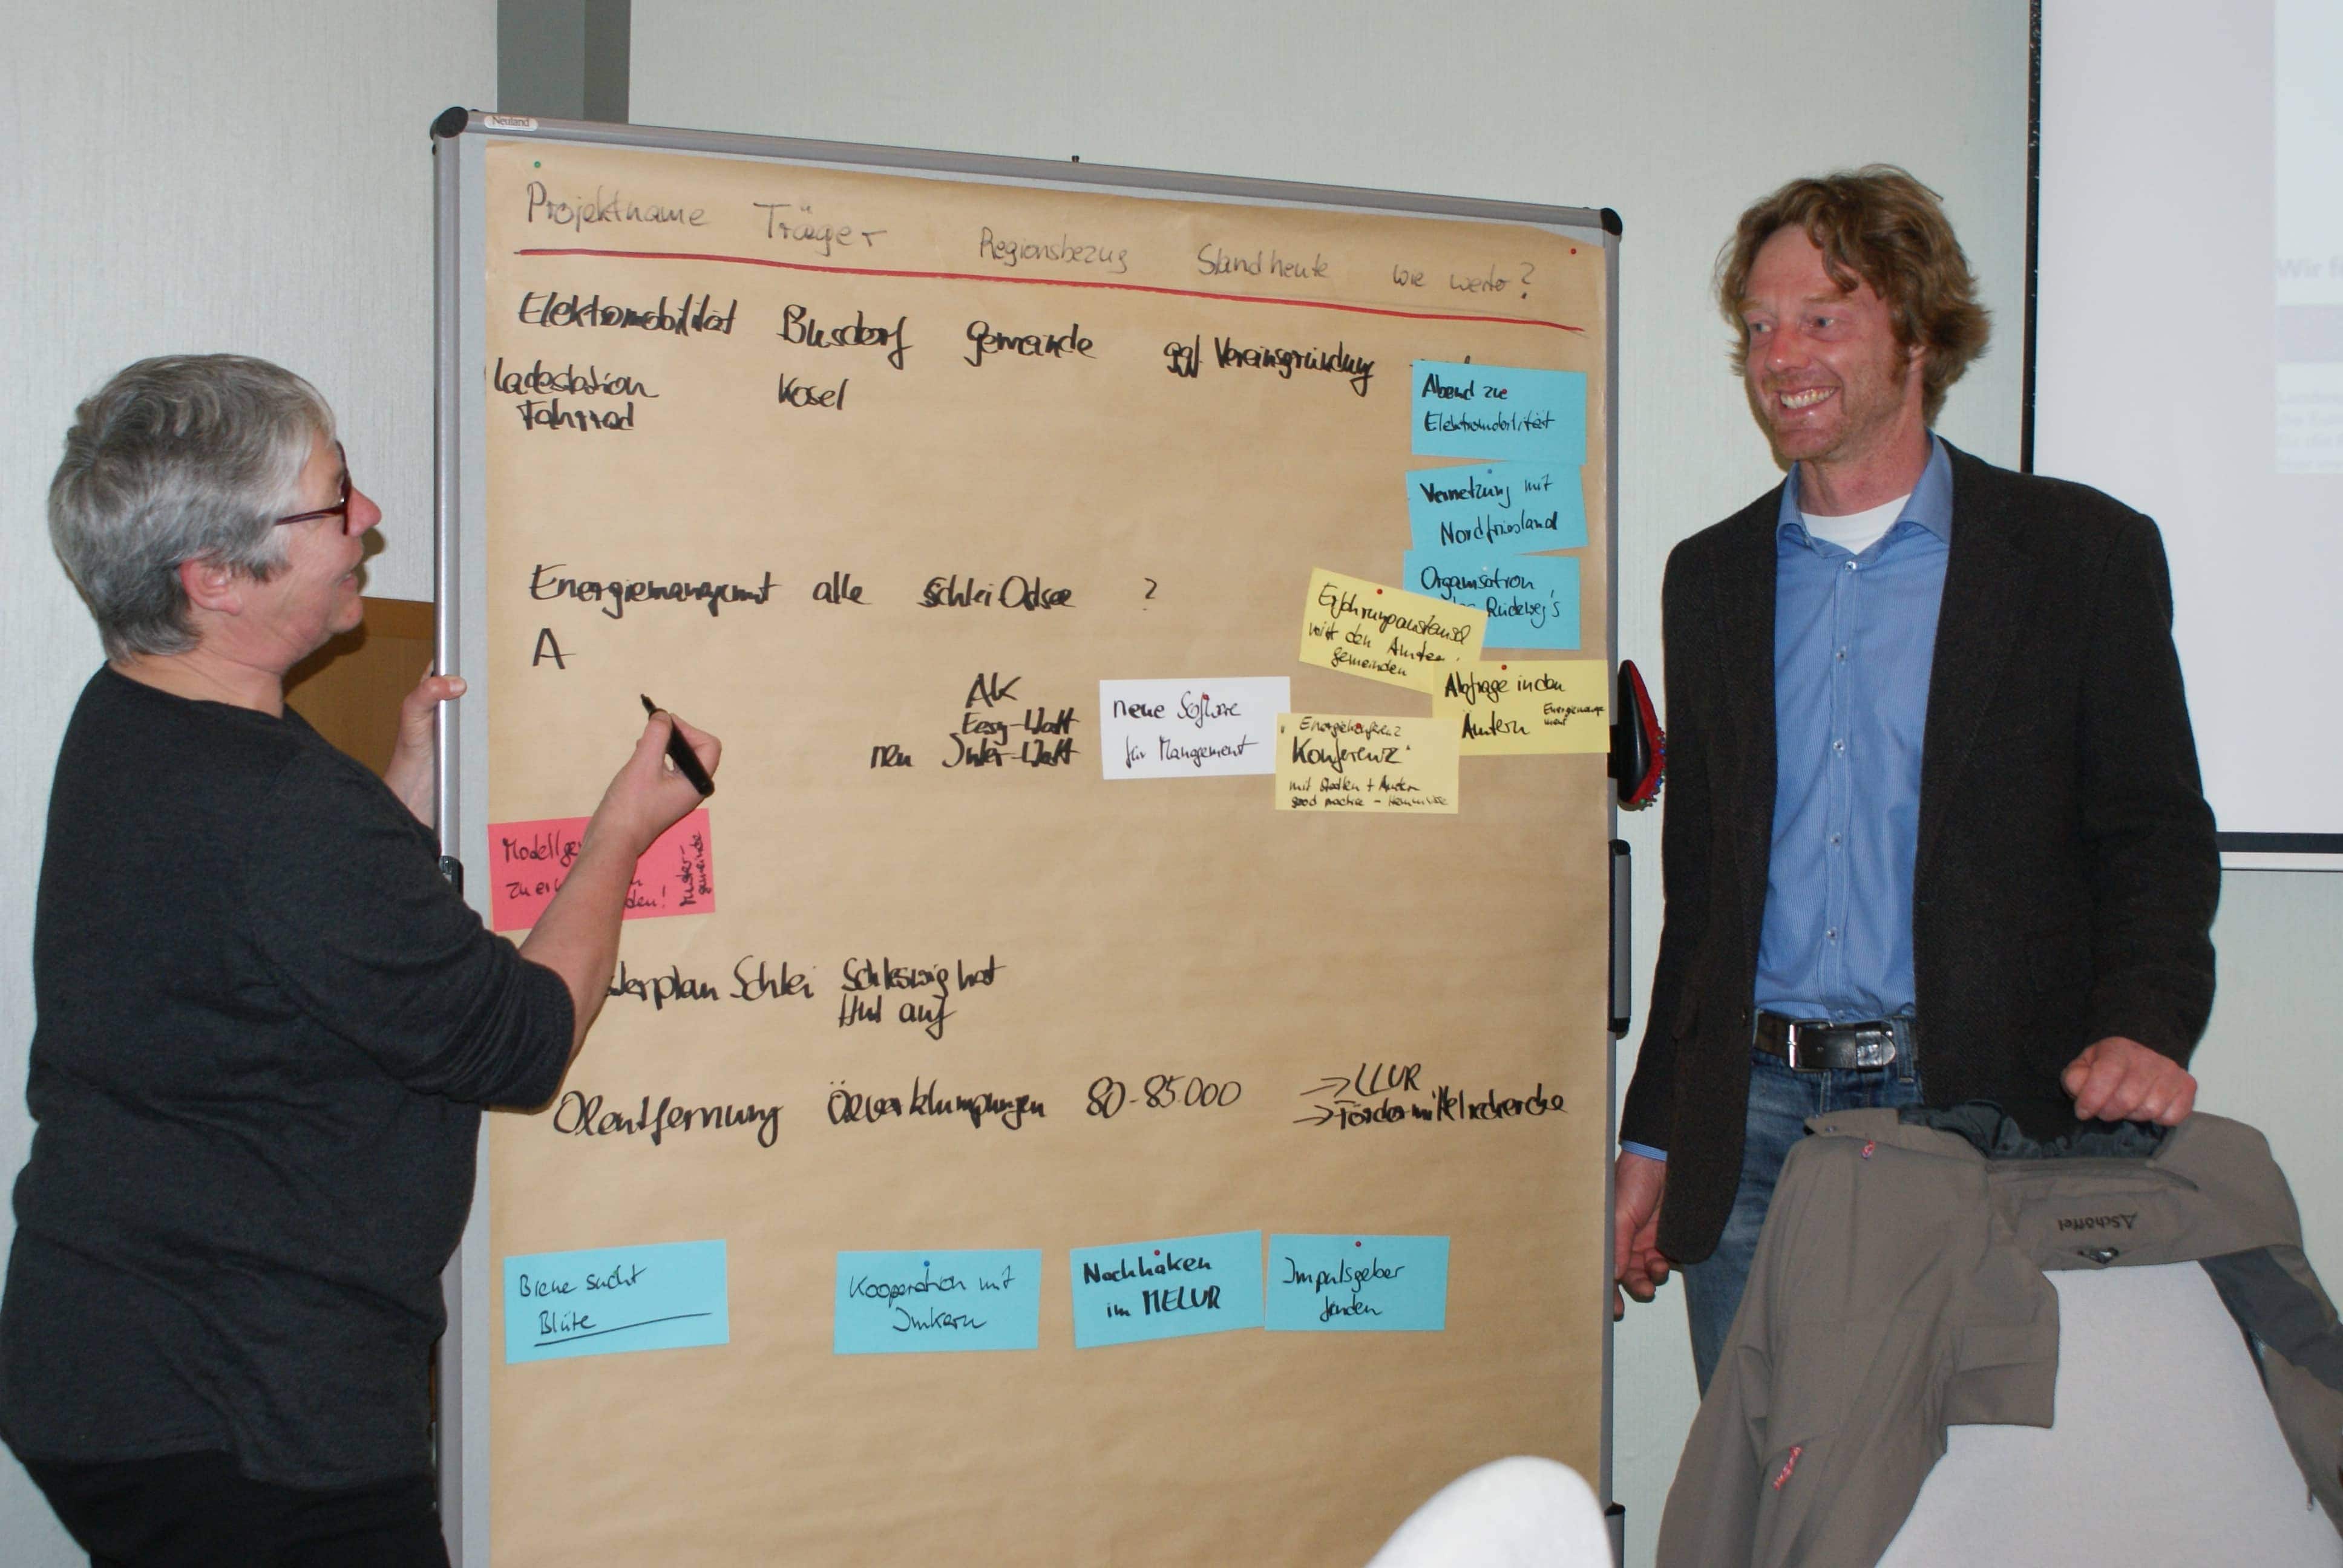 Neuland
Projektname Träger Regionsbezug Stand heute wie weiter?
Elektromobilität Busdorf Gemeinde ggf. Vereinsgründung
Ladestation Kosel
Fahrrad
Abend zur
Elektromobilität
Vernetzung mit
Nordfriesland
Organisation
Energiemanagement alle Schlei Ostsee ?
A
Erfahrungsaustausch
mit den Ämter
gemeinden
Abfrage in den
Ämtern
AK
Easy-Watt
neu Inter-Watt
neue Software
für Management
Konferenz
mit Städten + Ämtern
good practice
Modellge
zu er
den!
Muster-
gemeinde
sterplan Schlei Schleswig hat
Hut auf
Ölentfernung Ölverklumpungen 80-85.000 → LLUR
→ Fördermittelrecherche
Biene sucht
Blüte
Kooperation mit
Imkern
Nachhaken
im MELUR
Impulsgeber
finden
Schöffel
Wir f